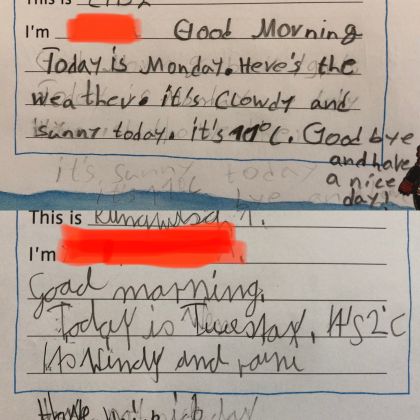 This is
I'm Good Morning
Today is Monday. Here's the
weather. it's Clowdy and
sunny today. it's 11°C. Good bye
and have
a nice
day!
it's sunny today
it's 11°C bye
This is
I'm
Goad morning.
Today is Tuestay. It's 2°C
Its Windy and raini
Have day